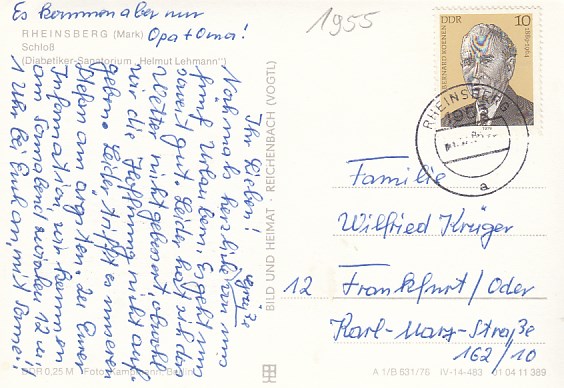 Es kommen aber nur
Opa + Oma!
RHEINSBERG (Mark)
Schloß
(Diabetiker-Sanatorium „Helmut Lehmann“)
Ihr Lieben!
Nochmals herzliche Grüße
vom
Urlaub. Es geht uns
soweit gut. Leider hat sich das
Wetter nicht gebessert, obwohl
wir die Hoffnung nicht auf-
geben. Leider trifft es unseren
Stefan am ärgsten. Zu Eurer
Information, wir kommen
am Sonnabend zwischen 12 u.
1 Uhr bei Euch an, mit Sonne!
DDR 0,25 M Foto: Kampmann, Berlin
BILD UND HEIMAT · REICHENBACH (VOGTL)
1955
10
DDR
BERNARD KOENEN
1889-1964
RHEINSBERG
1955
a
Familie
Wilfried Krüger
12 Frankfurt/Oder
Karl-Marx-Straße
162/10
A 1/B 631/76 IV-14-483 01 04 11 389